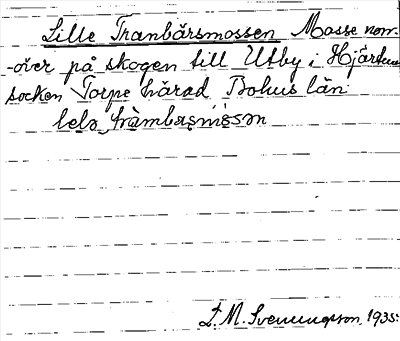 Lille Tranbärsmossen Mosse norr-
-över på skogen till Utby i Hjärtums
socken Torpe härad Bohus län
lelə trambasmɔsən
L. M. Svenungson, 1935.